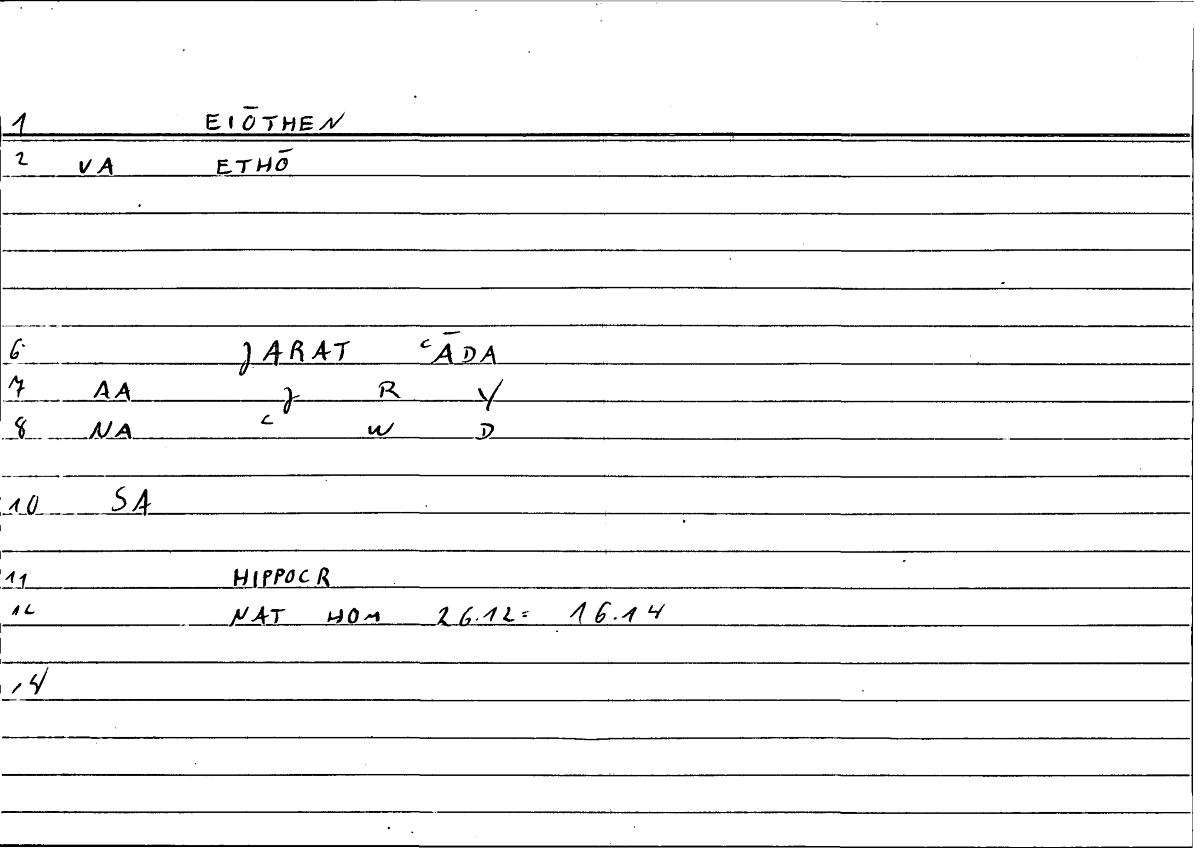 1 EIŌTHEN
2 VA ETHŌ
6 JARAT ʿĀDA
7 AA J R Y
8 NA ʿ W D
10 SA
11 HIPPOCR
12 NAT HOM 26.12= 16.14
14